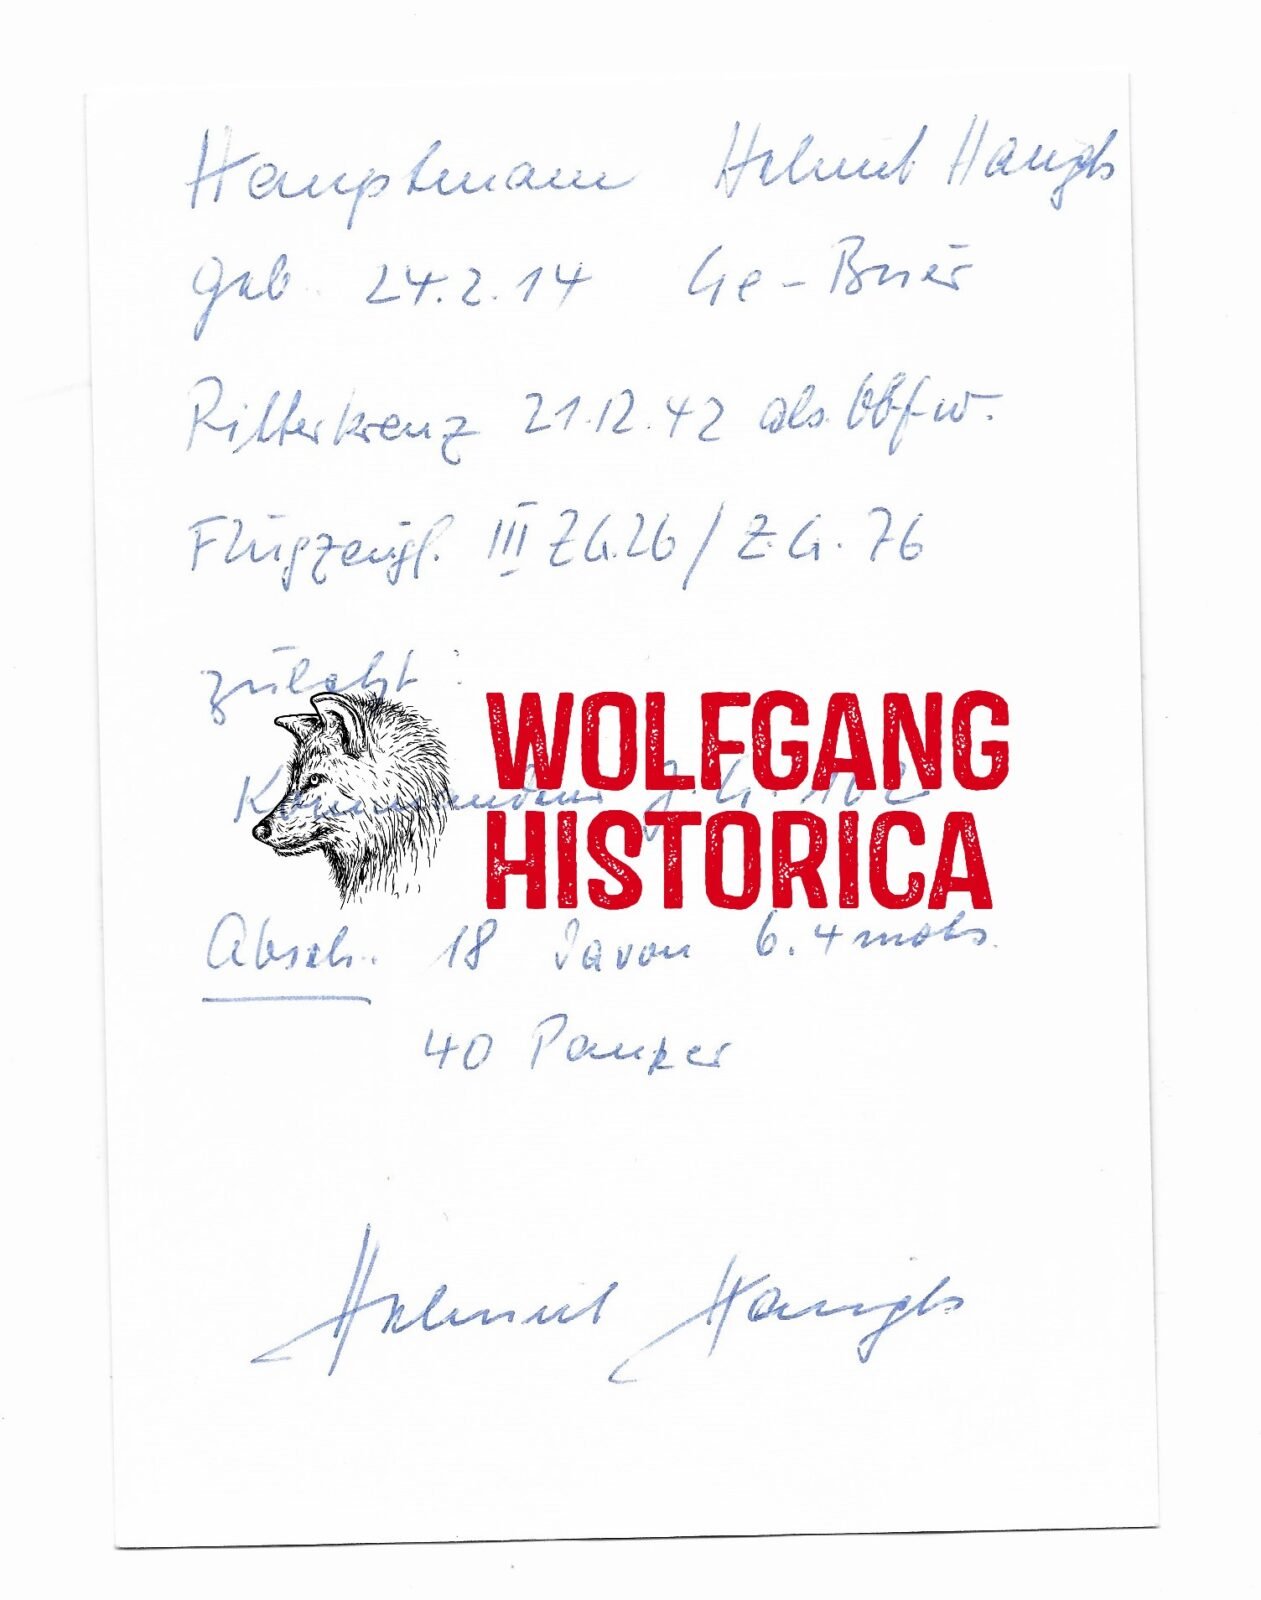 Hauptmann Helmut Haugk
geb. 24.2.14 Ge-Buer
Ritterkreuz 21.12.42 als Obfw.
Flugzeugf. III ZG.26/Z.G.76
zuletzt:
Kommandeur J.G. 102
WOLFGANG
HISTORICA
Absch. 18 davon 6. 4 mots.
40 Panzer
Helmut Haugk